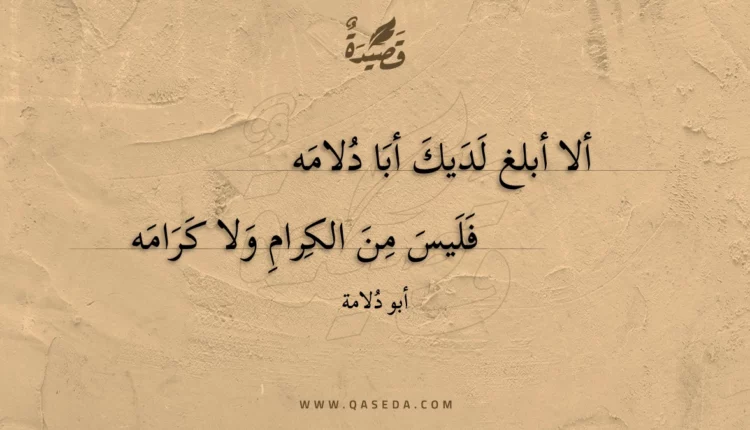 قَصِيدَةٌ
ألا أبلغ لَدَيكَ أبَا دُلامَه
فَلَيسَ مِنَ الكِرامِ وَلا كَرَامَه
أبو دُلامة
WWW.QASEDA.COM